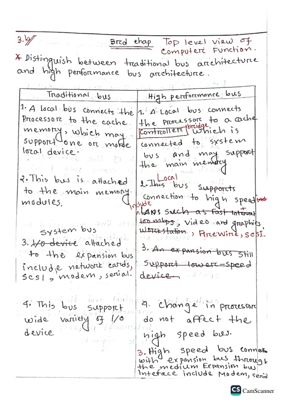 3.b)
Brcd chap Top level view of
Computer Function.
* Distinguish between traditional bus architecture
and high performance bus architecture.
Traditional bus
1. A local bus connects the
Processor to the cache
memory, which may
support one or more
local device.
2. This bus is attached
to the main memory
modules.
system bus
3. I/O device attached
to the expansion bus
include network cards,
SCSI, modem, serial.
4. This bus support
wide variety of I/O
device
High performance bus
1. A Local bus connects
the Processor to a cache
bridge
controller which is
connected to system
bus and may support
the main memory
Local
2. This bus supports
connection to high speed
include
LANs such as fast
video and graphic
workstation, FireWire, SCSI.
3. An expansion bus still
support lower speed
device.
4. Change in processor
do not affect the
high speed bus.
3. High speed bus connec
with expansion bus through
the medium Expansion bus
Interface include Modem, serial
CS CamScanner